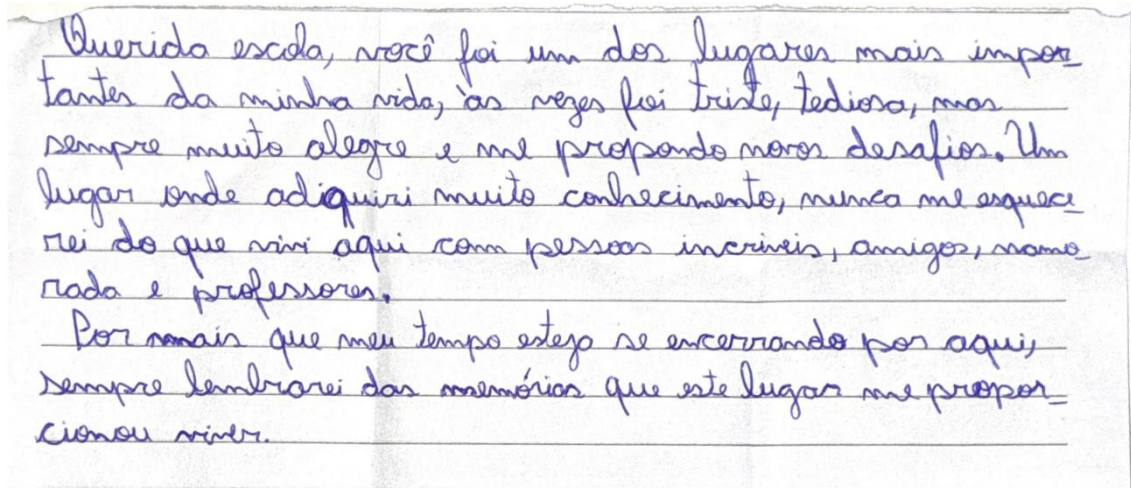 Querida escola, você foi um dos lugares mais impor-
tantes da minha vida, às vezes foi triste, tediosa, mas
sempre muito alegre e me propondo novos desafios. Um
lugar onde adiquiri muito conhecimento, nunca me esquece
rei do que vivi aqui com pessoas incriveis, amigos, namo
rada e professores.
Por mais que meu tempo esteja se encerrando por aqui,
sempre lembrarei das memórias que este lugar me propor-
cionou viver.